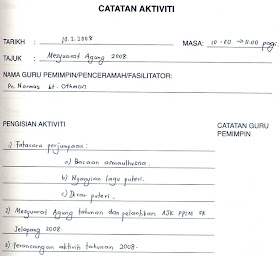 CATATAN AKTIVITI
TARIKH : 10.2.2008 MASA: 10.00 → 11.00 pagi
TAJUK : Mesyuarat Agung 2008
NAMA GURU PEMIMPIN/PENCERAMAH/FASILITATOR:
Pn. Normas bt. Othman
PENGISIAN AKTIVITI CATATAN GURU PEMIMPIN
1) Tatacara perjumpaan:
a) Bacaan asmaulhusna.
b) Nyanyian lagu puteri.
c) Ikrar puteri.
2) Mesyuarat Agung tahunan dan pelantikan AJK PPIM SK
Jelapang 2008
3) Perancangan aktiviti tahunan 2008.